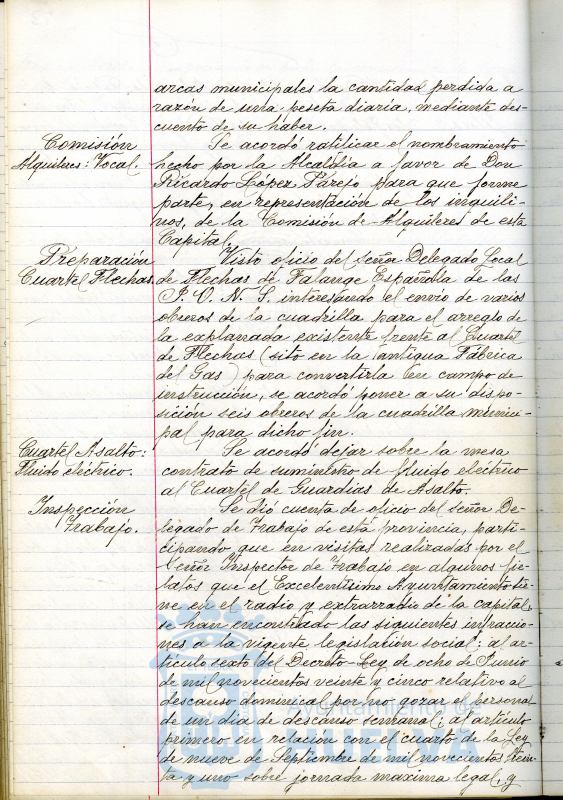 arcas municipales la cantidad perdida a
razón de una peseta diaria, mediante des-
cuento de su haber.
Comisión
Alquileres: Vocal.
Se acordó ratificar el nombramiento
hecho por la Alcaldía a favor de Don
Ricardo López Parejo para que forme
parte, en representación de los inquili-
nos, de la Comisión de Alquileres de esta
Capital.
Preparación
Cuartel Flechas.
Visto oficio del señor Delegado Local
de Flechas de Falange Española de las
J. O. N. S. interesando el envio de varios
obreros de la cuadrilla para el arreglo de
la explanada existente frente al Cuartel
de Flechas (sito en la antigua Fábrica
del Gas) para convertirla en campo de
instrucción, se acordó poner a su dispo-
sición seis obreros de la cuadrilla munici-
pal para dicho fin.
Cuartel Asalto:
Fluido eléctrico.
Se acordó dejar sobre la mesa
contrato de suministro de fluido eléctrico
al Cuartel de Guardias de Asalto.
Inspección
Trabajo.
Se dió cuenta de oficio del señor De-
legado de Trabajo de esta provincia, parti-
cipando que en visitas realizadas por el
señor Inspector de Trabajo en algunos fie-
latos que el Excelentísimo Ayuntamiento tie-
ne en el radio y extrarradio de la capital,
se han encontrado las siguientes infraccio-
nes a la vigente legislación social: al ar-
tículo sexto del Decreto-Ley de ocho de Junio
de mil novecientos veinte y cinco relativo al
descanso dominical por no gozar el personal
de un dia de descanso semanal; al artículo
primero en relación con el cuarto de la Ley
de nueve de Septiembre de mil novecientos trein-
ta y uno sobre jornada maxima legal, y
Ayuntamiento de
HUELVA